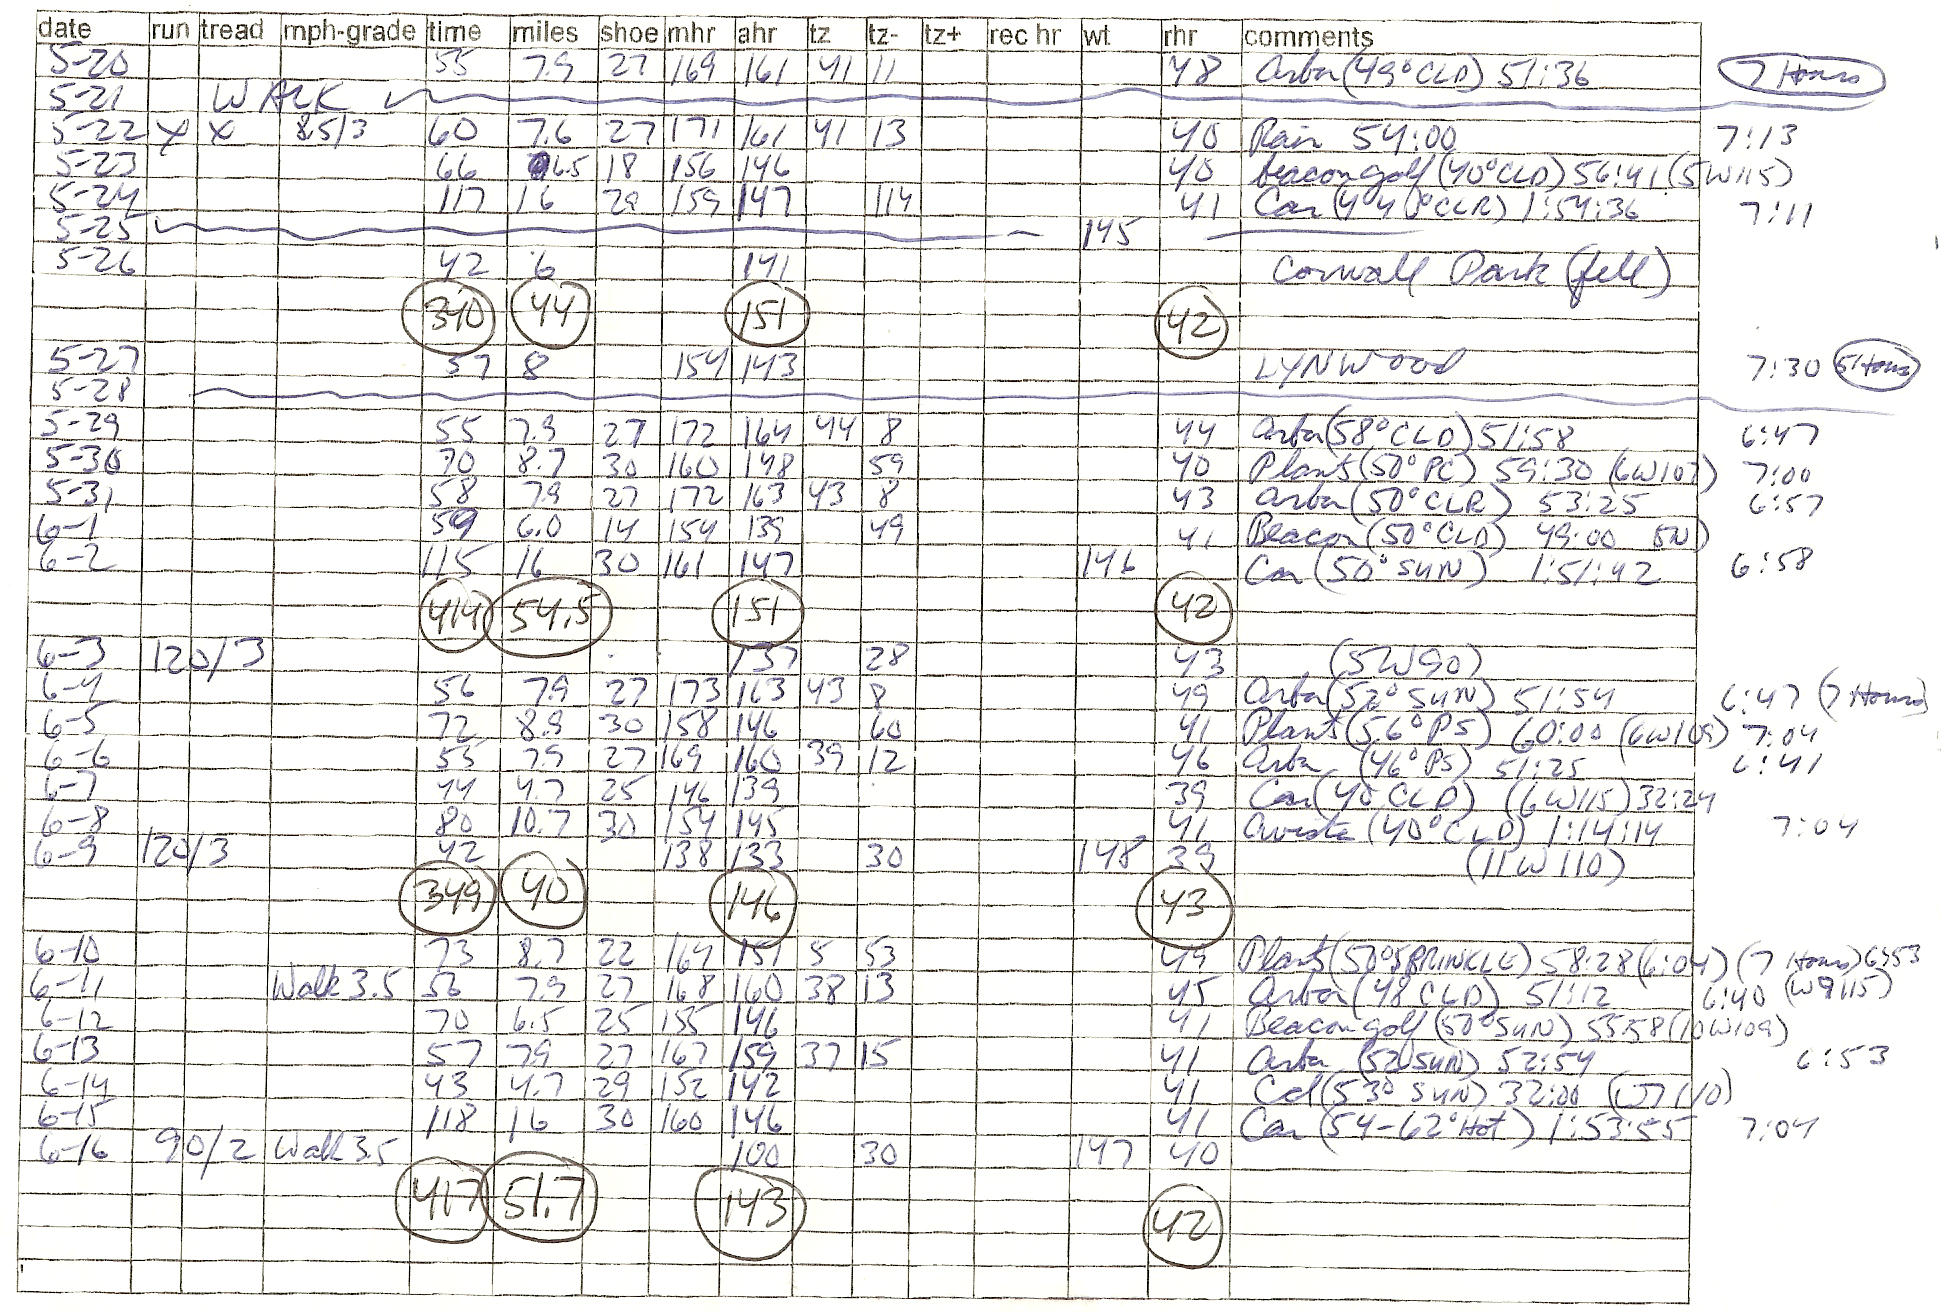 date run tread mph-grade time miles shoe mhr ahr tz tz- tz+ rec hr wt rhr comments
5-20 55 7.9 27 169 161 41 11 48 Arbor (49° CLD) 51:36 7 Hours
5-21 WALK
5-22 X X 8.5/3 60 7.6 27 171 161 41 13 40 Rain 54:00 7:13
5-23 66 6.5 18 156 146 40 beacon golf (40° CLD) 56:41 (5W115)
5-24 117 16 29 159 147 114 41 Can (44° CLR) 1:54:36 7:11
5-25 145
5-26 42 6 141 Cornwall Park (fell)
340 44 151 42
5-27 57 8 154 143 LYNWood 7:30 5 Hours
5-28
5-29 55 7.9 27 172 164 44 8 44 Arbor (58° CLD) 51:58 6:47
5-30 70 8.7 30 160 148 59 40 Plants (50° PC) 59:30 (6W107) 7:00
5-31 58 7.9 27 172 163 43 8 43 Arbor (50° CLR) 53:25 6:57
6-1 59 6.0 14 154 139 49 41 Beacon (50° CLD) 49:00 5W)
6-2 115 16 30 161 147 146 Can (50° SUN) 1:51:42 6:58
414 54.5 151 42
6-3 120/3 137 28 43 (52W90)
6-4 56 7.9 27 173 163 43 8 49 Arbor (52° SUN) 51:54 6:47 (7 Hours)
6-5 72 8.9 30 158 146 60 41 Plants (56° PS) 60:00 (6W109) 7:04
6-6 55 7.9 27 169 160 39 12 46 Arbor (46° PS) 51:25 6:41
6-7 44 4.7 25 146 139 39 Can (40 CLD) (6W115) 32:24
6-8 80 10.7 30 154 145 41 (40° CLD) 1:14:14 7:04
6-9 120/3 42 138 133 30 148 39 (11W110)
349 40 146 43
6-10 73 8.7 22 164 151 5 53 49 Plants (50° SPRINKLE) 58:28 (6:04) (7 Hours) 6:53
6-11 Walk 3.5 56 7.9 27 168 160 38 13 45 Arbor (48 CLD) 51:12 6:40 (W9115)
6-12 70 6.5 25 155 146 41 Beacon golf (50° SUN) 55:58 (10W109)
6-13 57 7.9 27 167 159 37 15 41 Arbor (52 SUN) 52:54 6:53
6-14 43 4.7 29 152 142 41 (53° SUN) 32:00 (W7110)
6-15 118 16 30 160 146 41 Can (54-62° Hot) 1:53:55 7:04
6-16 90/2 Walk 3.5 100 30 147 40
417 51.7 143 42